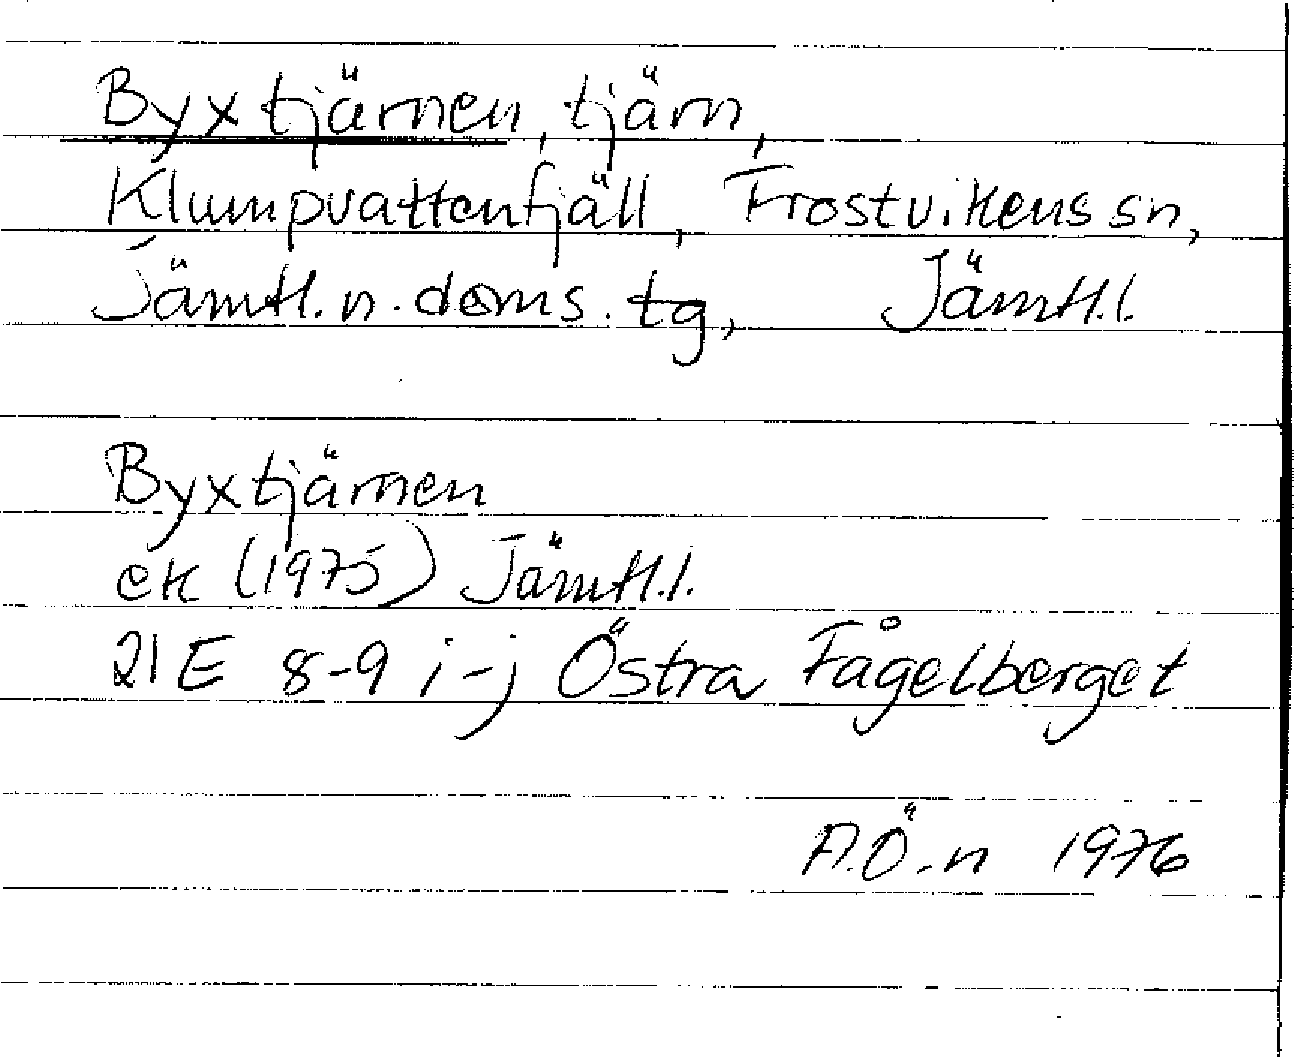 Byxtjärnen, tjärn,
Klumpvattenfjäll, Frostvikens sn,
Jämtl. n. doms. tg, Jämtl. l.
Byxtjärnen
ek (1975) Jämtl. l.
21 E 8-9 i-j Östra Fågelberget
A.Ö.n 1976